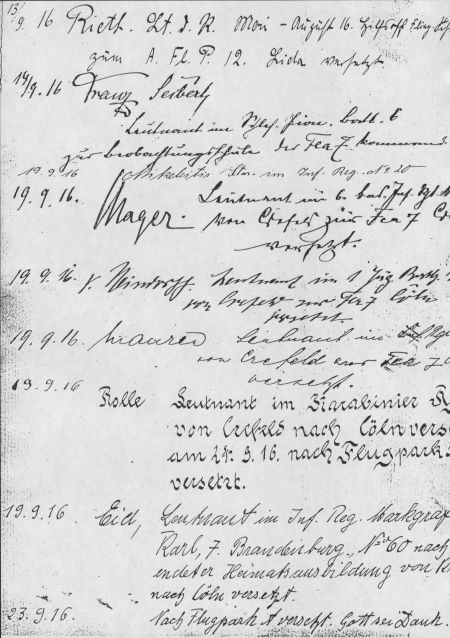 13/9. 16 Rieth. Lt. d. R. Mai - August 16.
zum A. Fl. P. 12. Lida versetzt.
14/9.16 Franz Seibert
Leutnant im Schles. Pion. Batl. 6
zur Beobachtungsschule der Fea 7 kommand
19.9.16 Ltn. im Inf. Reg. No 20
19. 9. 16. Mager. Leutnant im 6. bad. Inf. Rgt.
von Crefeld zur Fea 7
versetzt.
19. 9. 16. v. Leutnant im 1
von Crefeld zur Fea 7 Cöln
versetzt
19. 9. 16. Leutnant im
von Crefeld zur Fea 7
versetzt.
13. 9. 16
Rolle Leutnant im Karabinier R
von Crefeld nach Cöln vers
am 24. 9. 16. nach Flugpark
versetzt.
19. 9. 16 Eid, Leutnant im Inf. Reg. Markgraf
Karl, 7. Brandenburg., No 60 nach
endeter Heimatsausbildung von
nach Cöln versetzt.
23. 9. 16. Nach Flugpark A versetzt. Gott sei Dank.